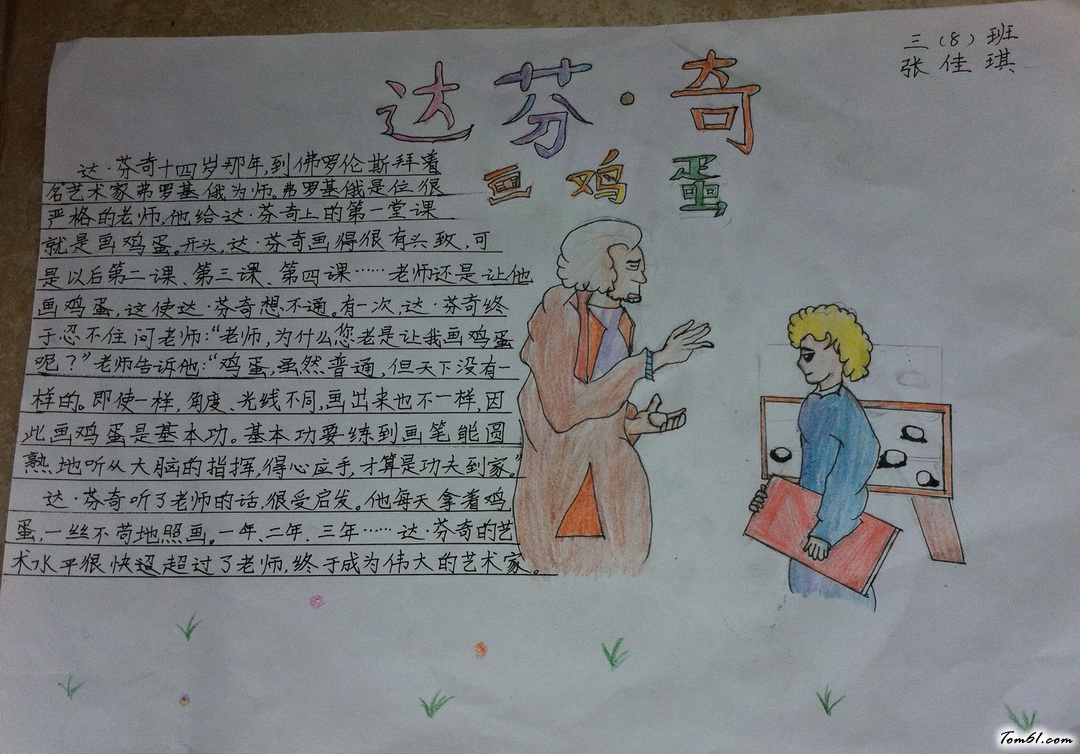 三（8）班
张佳琪
达芬·奇
画鸡蛋
达·芬奇十四岁那年，到佛罗伦斯拜着
名艺术家弗罗基俄为师。弗罗基俄是位很
严格的老师，他给达·芬奇上的第一堂课
就是画鸡蛋。开头，达·芬奇画得很有兴致，可
是以后第二课、第三课、第四课……老师还是让他
画鸡蛋，这使达·芬奇想不通。有一次，达·芬奇终
于忍不住问老师：“老师，为什么您老是让我画鸡蛋
呢？”老师告诉他：“鸡蛋，虽然普通，但天下没有一
样的。即使一样，角度、光线不同，画出来也不一样，因
此画鸡蛋是基本功。基本功要练到画笔能圆
熟地听从大脑的指挥，得心应手，才算是功夫到家。”
达·芬奇听了老师的话，很受启发。他每天拿着鸡
蛋，一丝不苟地照画。一年、二年、三年……达·芬奇的艺
术水平很快超超过了老师，终于成为伟大的艺术家。
Tom61.com